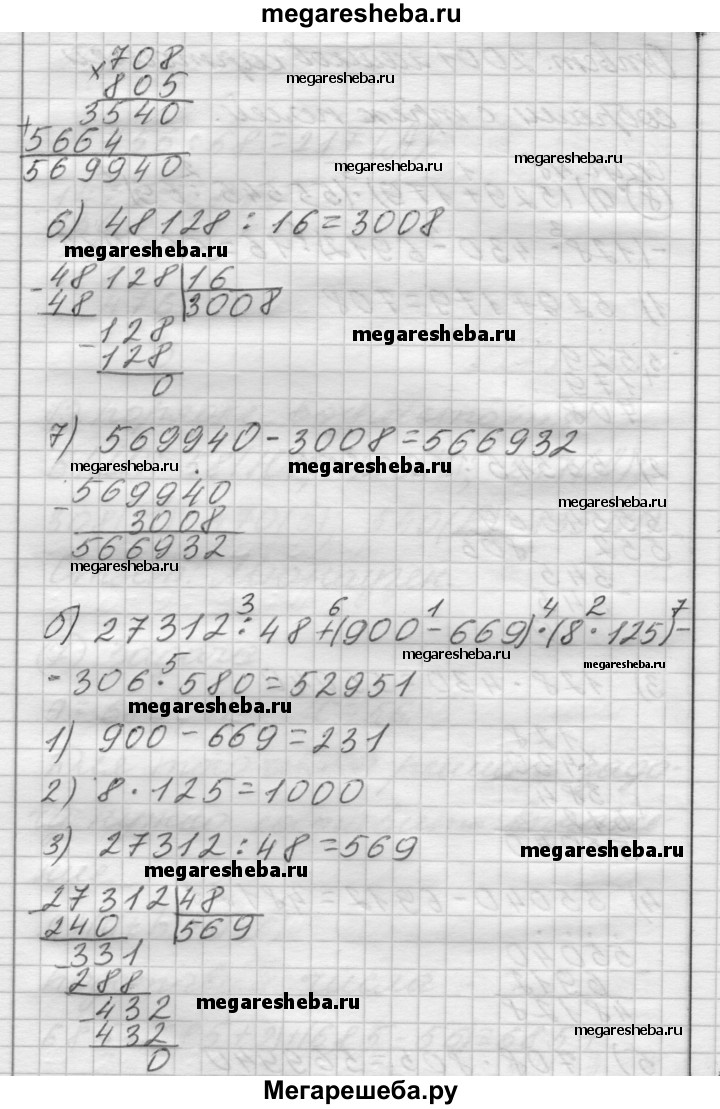 megaresheba.ru
708
× 805
3540
megaresheba.ru
+ 5664
569940
megaresheba.ru
megaresheba.ru
6) 48128 : 16 = 3008
megaresheba.ru
megaresheba.ru
- 48128 | 16
48 3008
- 128
megaresheba.ru
128
0
7) 569940 - 3008 = 566932
megaresheba.ru
megaresheba.ru
- 569940
megaresheba.ru
3008
566932
megaresheba.ru
3 6 1 4 2 7
б) 27312 : 48 + (900 - 669) · (8 · 125) -
megaresheba.ru
megaresheba.ru
5
- 306 · 580 = 52951
megaresheba.ru
1) 900 - 669 = 231
2) 8 · 125 = 1000
3) 27312 : 48 = 569
megaresheba.ru
megaresheba.ru
- 27312 | 48
240 569
- 331
288
- 432
megaresheba.ru
432
megaresheba.ru
0
Мегарешеба.ру